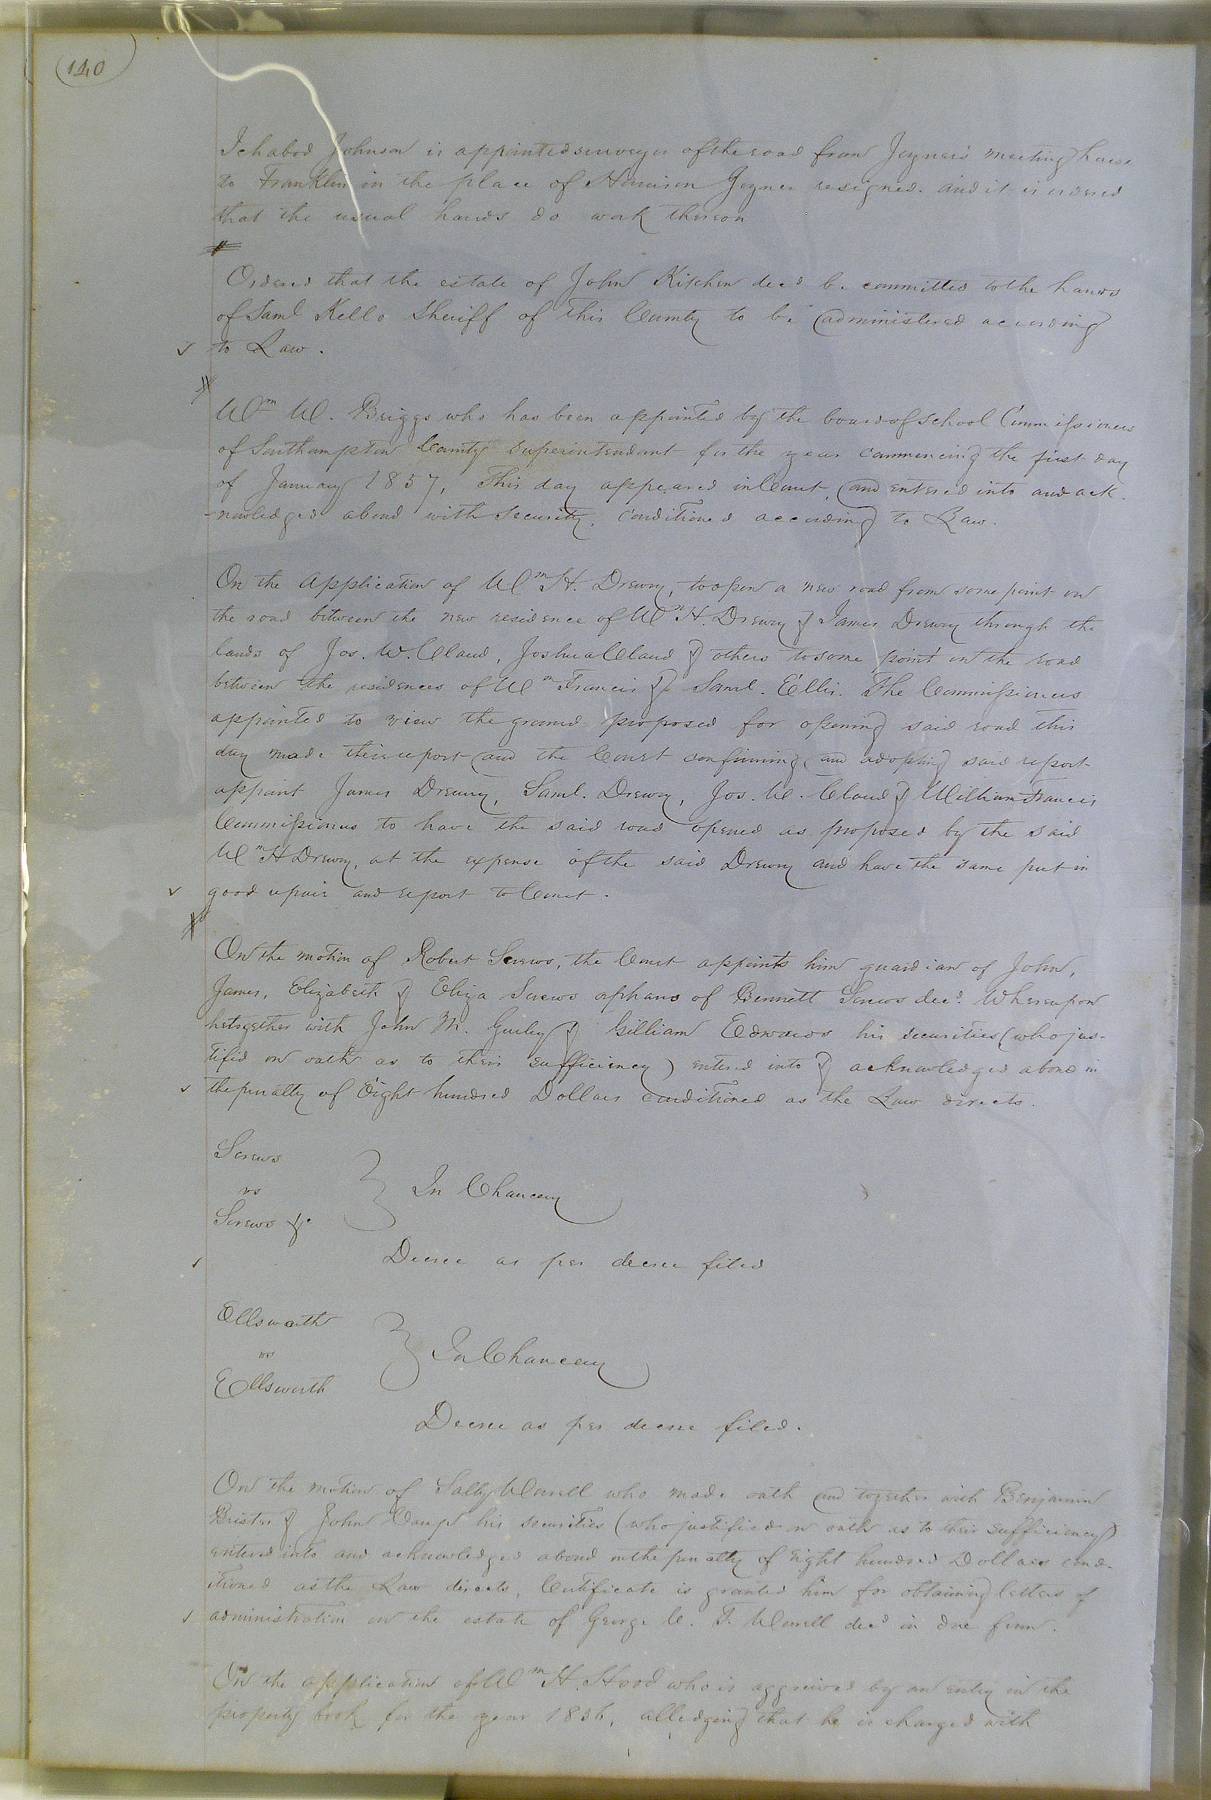 140
Ichabod Johnson is appointed surveyor of the road from Joyner's meeting house
to Franklin in the place of Harrison Joyner resigned. and it is ordered
that the usual hands do work thereon
Ordered that the estate of John Kitchen decd be committed to the hands
of Saml Kello Sheriff of this County to be administered according
to Law.
Wm W. Briggs who has been appointed by the board of School Commissioners
of Southampton County superintendant for the year commencing the first day
of January 1857, This day appeared in Court, and entered into and ack-
nowledged a bond with security, conditioned according to Law.
On the application of Wm H. Drewry, to open a new road from some point on
the road between the new residence of Wm H. Drewry & James Drewry through the
lands of Jos. W. Claud, Joshua Claud & others to some point on the road
between the residences of Wm Francis & Saml. Ellis. The Commissioners
appointed to view the ground proposed for opening said road this
day made their report and the Court confirming and adopting said report
appoint James Drewry, Saml. Drewry, Jos. W. Claud & William Francis
Commissioners to have the said road opened as proposed by the said
Wm H Drewry, at the expense of the said Drewry and have the same put in
good repair and report to Court.
On the motion of Robert Screws, the Court appoints him guardian of John,
James, Elizabeth & Eliza Screws orphans of Bennett Screws decd. Whereupon
he together with John M. Gurley & Gilliam Edwards his securities (who jus-
tified on oath as to their sufficiency) entered into & acknowledged a bond in
the penalty of Eight hundred Dollars conditioned as the Law directs.
Screws
vs
Screws &c
In Chancery
Decree as per decree filed
Ellsworth
vs
Ellsworth
In Chancery
Decree as per decree filed.
On the motion of Sally Worrell who made oath and together with Benjamin
Brister & John his securities (who justified on oath as to their sufficiency)
entered into and acknowledged a bond in the penalty of eight hundred Dollars cond-
itioned as the Law directs, Certificate is granted him for obtaining letters of
administration on the estate of George W. T. Worrell decd in due form.
On the application of Wm H. Hood who is aggrieved by an entry in the
property book for the year 1856, alledging that he is charged with